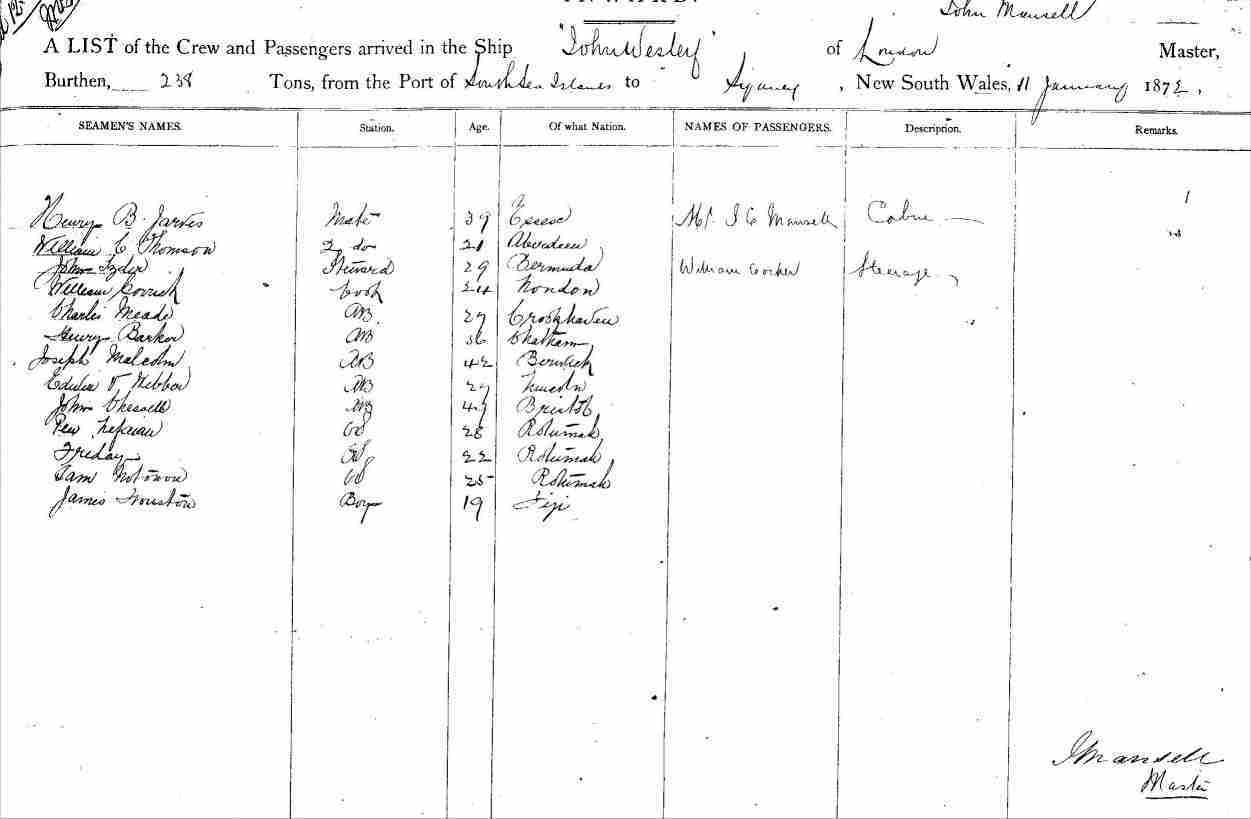 John Mansell
A LIST of the Crew and Passengers arrived in the Ship "John Wesley" of London Master,
Burthen, 238 Tons, from the Port of South Sea Islands to Sydney, New South Wales, 11 January 1872.
SEAMEN'S NAMES. Station. Age. Of what Nation. NAMES OF PASSENGERS. Description. Remarks.
Henry B. Jarvis Mate 39 Essex Mr. J C Mansell
William C Thomson 2 do 21 Aberdeen
John Steward 29 Bermuda William Steerage
William Cook 24 London
Charles Meade AB 29 Crookhaven
Henry Barker AB 36 Chatham
Joseph Malcolm AB 42 Berwick
Edwin AB 29 Lincoln
John AB 49 Bristol
28 Rotumah
Friday 22 Rotumah
Sam 25 Rotumah
James Houston Boy 19 Fiji
J Mansell
Master